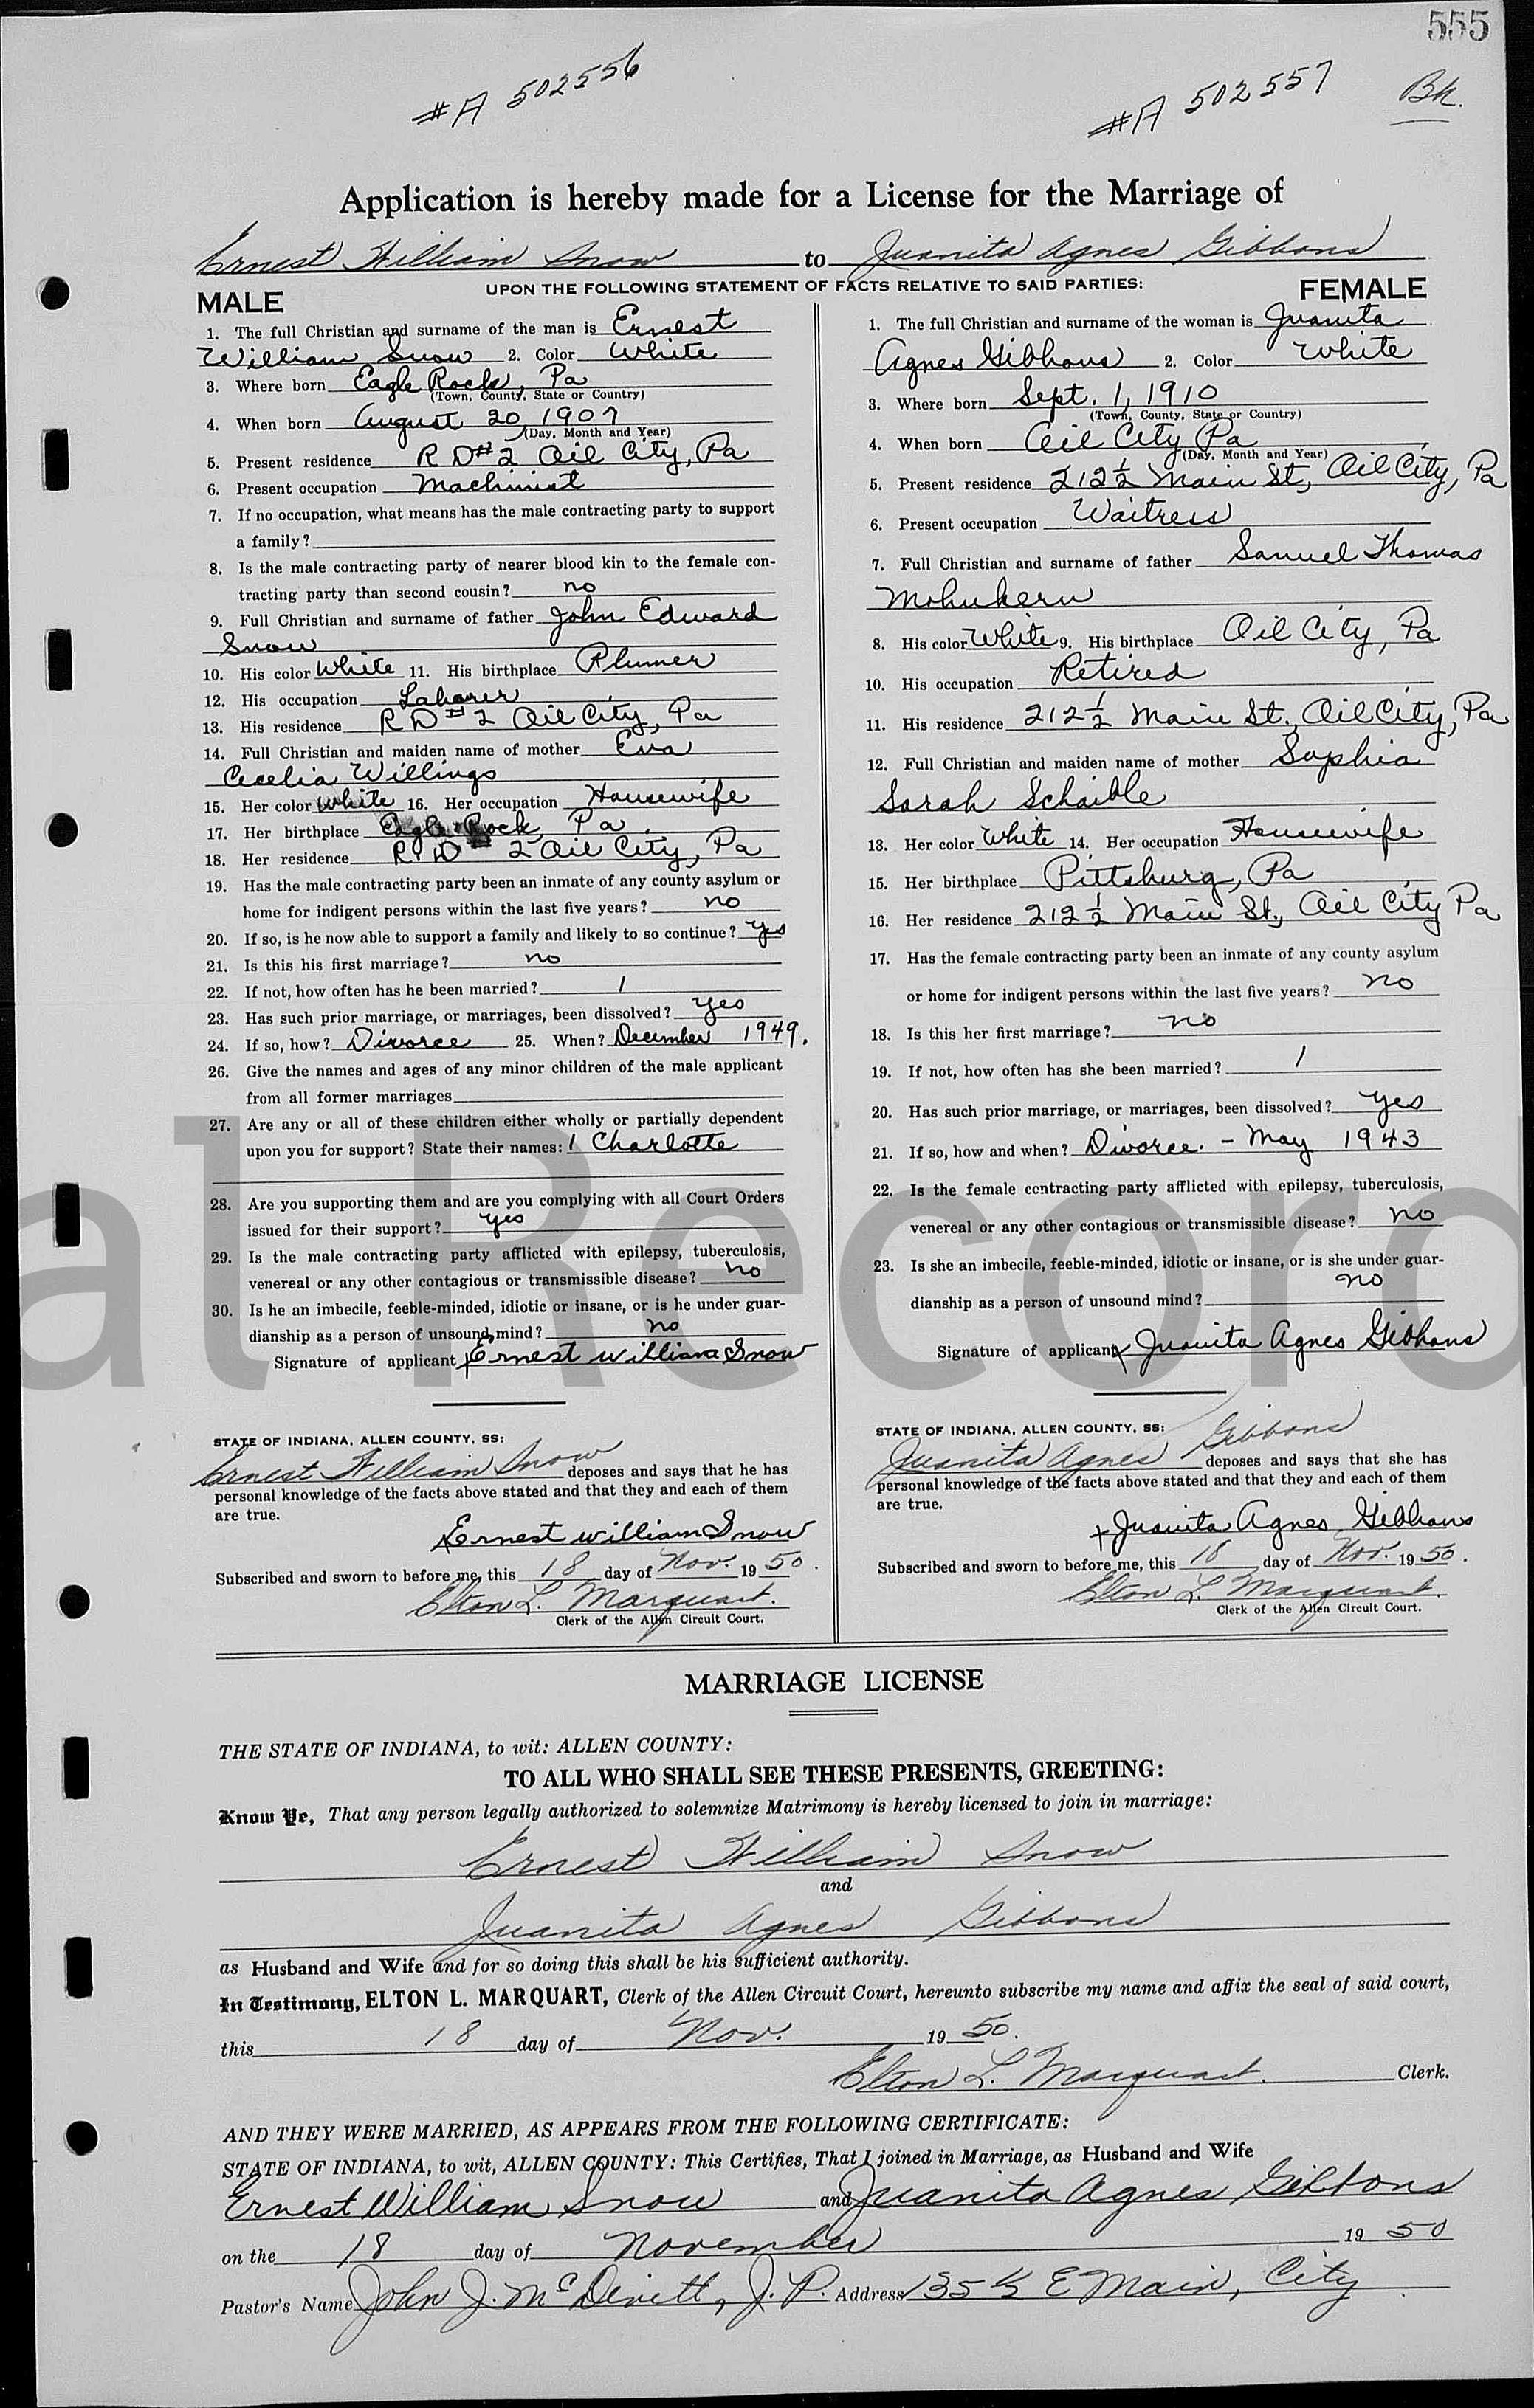 555
#A 502556
#A 502557
Bk.
Application is hereby made for a License for the Marriage of
Ernest William Snow to Juanita Agnes Gibbons
UPON THE FOLLOWING STATEMENT OF FACTS RELATIVE TO SAID PARTIES:
MALE
1. The full Christian and surname of the man is Ernest
William Snow 2. Color White
3. Where born Eagle Rock, Pa
(Town, County, State or Country)
4. When born August 20, 1907
(Day, Month and Year)
5. Present residence R D #2 Oil City, Pa
6. Present occupation Machinist
7. If no occupation, what means has the male contracting party to support
a family?
8. Is the male contracting party of nearer blood kin to the female con-
tracting party than second cousin? no
9. Full Christian and surname of father John Edward
Snow
10. His color White 11. His birthplace Plumer
12. His occupation Laborer
13. His residence R D #2 Oil City, Pa
14. Full Christian and maiden name of mother Eva
Cecelia Willings
15. Her color White 16. Her occupation Housewife
17. Her birthplace Eagle Rock, Pa
18. Her residence R. D # 2 Oil City, Pa
19. Has the male contracting party been an inmate of any county asylum or
home for indigent persons within the last five years? no
20. If so, is he now able to support a family and likely to so continue? yes
21. Is this his first marriage? no
22. If not, how often has he been married? 1
23. Has such prior marriage, or marriages, been dissolved? yes
24. If so, how? Divorce 25. When? December 1949.
26. Give the names and ages of any minor children of the male applicant
from all former marriages
27. Are any or all of these children either wholly or partially dependent
upon you for support? State their names: 1 Charlotte
28. Are you supporting them and are you complying with all Court Orders
issued for their support? yes
29. Is the male contracting party afflicted with epilepsy, tuberculosis,
venereal or any other contagious or transmissible disease? no
30. Is he an imbecile, feeble-minded, idiotic or insane, or is he under guar-
dianship as a person of unsound mind? no
Signature of applicant x Ernest William Snow
STATE OF INDIANA, ALLEN COUNTY, SS:
Ernest William Snow deposes and says that he has
personal knowledge of the facts above stated and that they and each of them
are true.
x Ernest William Snow
Subscribed and sworn to before me, this 18 day of Nov. 1950.
Elton L. Marquart.
Clerk of the Allen Circuit Court.
FEMALE
1. The full Christian and surname of the woman is Juanita
Agnes Gibbons 2. Color White
3. Where born Sept. 1, 1910
(Town, County, State or Country)
4. When born Oil City Pa
(Day, Month and Year)
5. Present residence 212 1/2 Main St, Oil City, Pa
6. Present occupation Waitress
7. Full Christian and surname of father Samuel Thomas
8. His color White 9. His birthplace Oil City, Pa
10. His occupation Retired
11. His residence 212 1/2 Main St., Oil City, Pa
12. Full Christian and maiden name of mother Sophia
Sarah Schaible
13. Her color White 14. Her occupation Housewife
15. Her birthplace Pittsburg, Pa
16. Her residence 212 1/2 Main St., Oil City Pa
17. Has the female contracting party been an inmate of any county asylum
or home for indigent persons within the last five years? no
18. Is this her first marriage? no
19. If not, how often has she been married? 1
20. Has such prior marriage, or marriages, been dissolved? yes
21. If so, how and when? Divorce. - May 1943
22. Is the female contracting party afflicted with epilepsy, tuberculosis,
venereal or any other contagious or transmissible disease? no
23. Is she an imbecile, feeble-minded, idiotic or insane, or is she under guar-
dianship as a person of unsound mind? no
Signature of applicant x Juanita Agnes Gibbons
STATE OF INDIANA, ALLEN COUNTY, SS:
Juanita Agnes Gibbons deposes and says that she has
personal knowledge of the facts above stated and that they and each of them
are true.
x Juanita Agnes Gibbons
Subscribed and sworn to before me, this 18 day of Nov. 1950.
Elton L. Marquart.
Clerk of the Allen Circuit Court.
al Record
MARRIAGE LICENSE
THE STATE OF INDIANA, to wit: ALLEN COUNTY:
TO ALL WHO SHALL SEE THESE PRESENTS, GREETING:
Know Ye, That any person legally authorized to solemnize Matrimony is hereby licensed to join in marriage:
Ernest William Snow
and
Juanita Agnes Gibbons
as Husband and Wife and for so doing this shall be his sufficient authority.
In Testimony, ELTON L. MARQUART, Clerk of the Allen Circuit Court, hereunto subscribe my name and affix the seal of said court,
this 18 day of Nov. 1950.
Elton L. Marquart. Clerk.
AND THEY WERE MARRIED, AS APPEARS FROM THE FOLLOWING CERTIFICATE:
STATE OF INDIANA, to wit, ALLEN COUNTY: This Certifies, That I joined in Marriage, as Husband and Wife
Ernest William Snow and Juanita Agnes Gibbons
on the 18 day of November 1950
Pastor's Name John J. McDevitt, J. P. Address 135 1/2 E Main, City